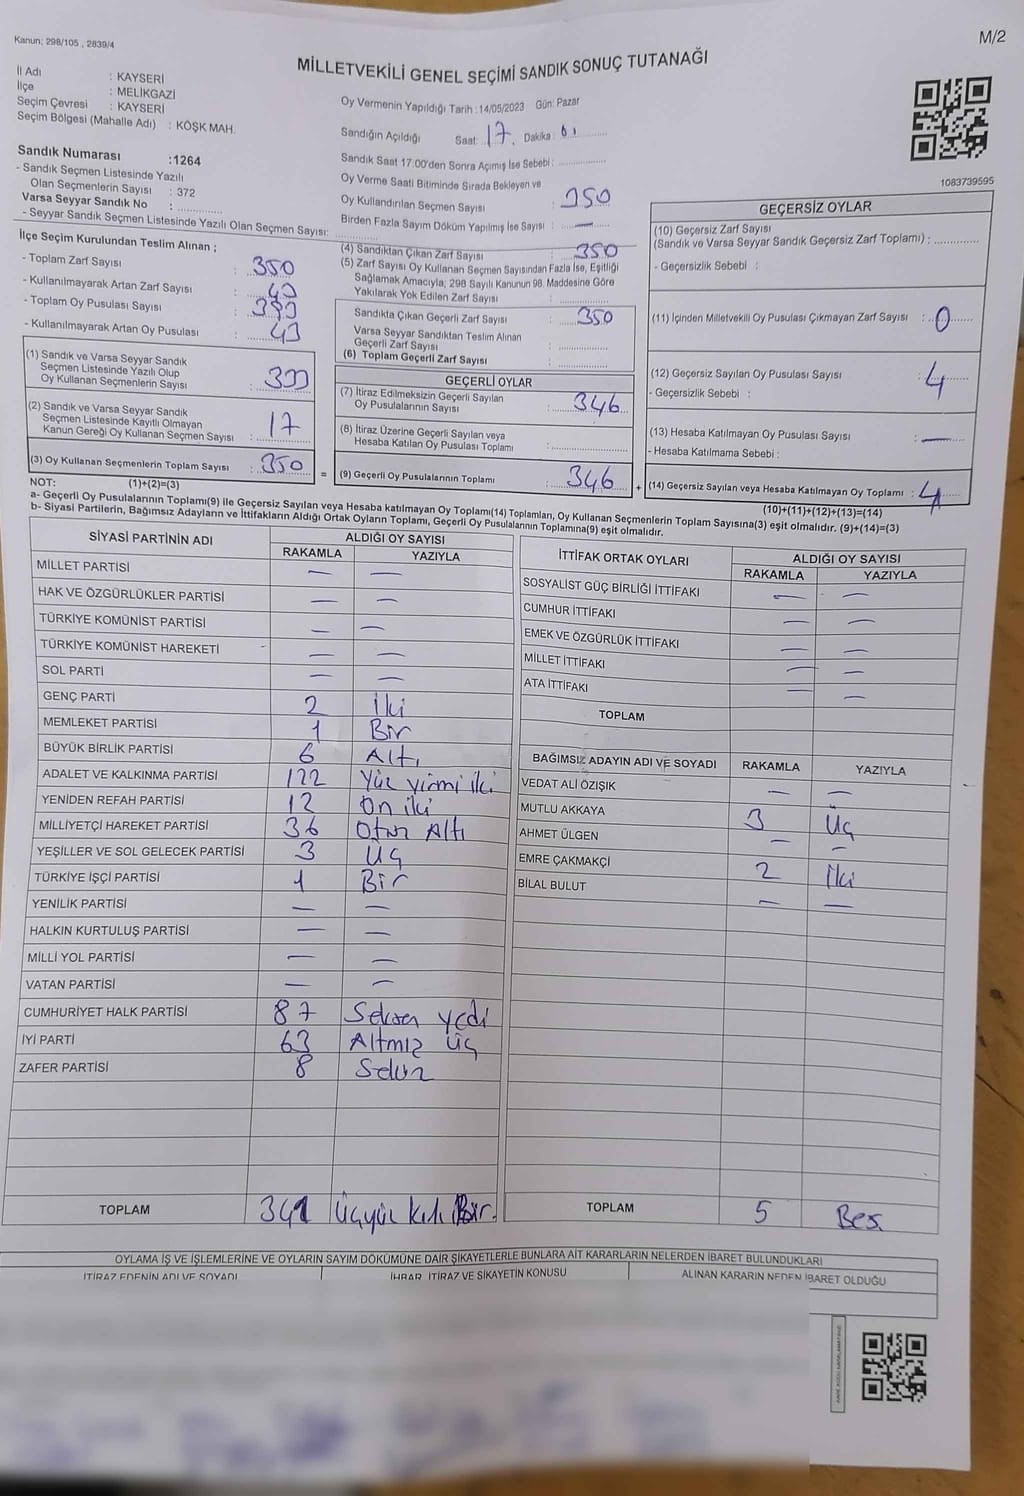 Kanun; 298/105 , 2839/4
M/2
MİLLETVEKİLİ GENEL SEÇİMİ SANDIK SONUÇ TUTANAĞI
İl Adı : KAYSERİ
İlçe : MELİKGAZİ
Seçim Çevresi : KAYSERİ
Seçim Bölgesi (Mahalle Adı) : KÖŞK MAH.
Sandık Numarası :1264
- Sandık Seçmen Listesinde Yazılı
Olan Seçmenlerin Sayısı : 372
Varsa Seyyar Sandık No :
- Seyyar Sandık Seçmen Listesinde Yazılı Olan Seçmen Sayısı:
Oy Vermenin Yapıldığı Tarih :14/05/2023 Gün: Pazar
Sandığın Açıldığı Saat: 17, Dakika :
Sandık Saat 17:00'den Sonra Açımış İse Sebebi :
Oy Verme Saati Bitiminde Sırada Bekleyen ve
Oy Kullandırılan Seçmen Sayısı : 350
Birden Fazla Sayım Döküm Yapılmış İse Sayısı : —
1083739595
İlçe Seçim Kurulundan Teslim Alınan ;
- Toplam Zarf Sayısı : 350
- Kullanılmayarak Artan Zarf Sayısı :
- Toplam Oy Pusulası Sayısı :
- Kullanılmayarak Artan Oy Pusulası :
(1) Sandık ve Varsa Seyyar Sandık
Seçmen Listesinde Yazılı Olup
Oy Kullanan Seçmenlerin Sayısı :
(2) Sandık ve Varsa Seyyar Sandık
Seçmen Listesinde Kayıtlı Olmayan
Kanun Gereği Oy Kullanan Seçmen Sayısı : 17
(3) Oy Kullanan Seçmenlerin Toplam Sayısı : 350
(4) Sandıktan Çıkan Zarf Sayısı : 350
(5) Zarf Sayısı Oy Kullanan Seçmen Sayısından Fazla İse, Eşitliği
Sağlamak Amacıyla; 298 Sayılı Kanunun 98. Maddesine Göre
Yakılarak Yok Edilen Zarf Sayısı :
Sandıkta Çıkan Geçerli Zarf Sayısı : 350
Varsa Seyyar Sandıktan Teslim Alınan
Geçerli Zarf Sayısı :
(6) Toplam Geçerli Zarf Sayısı :
GEÇERLİ OYLAR
(7) İtiraz Edilmeksizin Geçerli Sayılan
Oy Pusulalarının Sayısı : 346
(8) İtiraz Üzerine Geçerli Sayılan veya
Hesaba Katılan Oy Pusulası Toplamı :
= (9) Geçerli Oy Pusulalarının Toplamı : 346
GEÇERSİZ OYLAR
(10) Geçersiz Zarf Sayısı
(Sandık ve Varsa Seyyar Sandık Geçersiz Zarf Toplamı) :
- Geçersizlik Sebebi :
(11) İçinden Milletvekili Oy Pusulası Çıkmayan Zarf Sayısı : 0
(12) Geçersiz Sayılan Oy Pusulası Sayısı : 4
- Geçersizlik Sebebi :
(13) Hesaba Katılmayan Oy Pusulası Sayısı : —
- Hesaba Katılmama Sebebi :
+ (14) Geçersiz Sayılan veya Hesaba Katılmayan Oy Toplamı : 4
NOT: (1)+(2)=(3)
(10)+(11)+(12)+(13)=(14)
a- Geçerli Oy Pusulalarının Toplamı(9) ile Geçersiz Sayılan veya Hesaba katılmayan Oy Toplamı(14) Toplamları, Oy Kullanan Seçmenlerin Toplam Sayısına(3) eşit olmalıdır. (9)+(14)=(3)
b- Siyasi Partilerin, Bağımsız Adayların ve İttifakların Aldığı Ortak Oyların Toplamı, Geçerli Oy Pusulalarının Toplamına(9) eşit olmalıdır.
SİYASİ PARTİNİN ADI ALDIĞI OY SAYISI
RAKAMLA YAZIYLA
MİLLET PARTİSİ — —
HAK VE ÖZGÜRLÜKLER PARTİSİ — —
TÜRKİYE KOMÜNİST PARTİSİ — —
TÜRKİYE KOMÜNİST HAREKETİ — —
SOL PARTİ — —
GENÇ PARTİ 2 İki
MEMLEKET PARTİSİ 1 Bir
BÜYÜK BİRLİK PARTİSİ 6 Altı
ADALET VE KALKINMA PARTİSİ 122 Yüz yirmi iki
YENİDEN REFAH PARTİSİ 12 On iki
MİLLİYETÇİ HAREKET PARTİSİ 36 Otuz Altı
YEŞİLLER VE SOL GELECEK PARTİSİ 3 Üç
TÜRKİYE İŞÇİ PARTİSİ 1 Bir
YENİLİK PARTİSİ — —
HALKIN KURTULUŞ PARTİSİ — —
MİLLİ YOL PARTİSİ — —
VATAN PARTİSİ — —
CUMHURİYET HALK PARTİSİ 87 Seksen yedi
İYİ PARTİ 63 Altmız üç
ZAFER PARTİSİ 8 Sekiz
TOPLAM 341 Üçyüz Kırk Bir.
İTTİFAK ORTAK OYLARI ALDIĞI OY SAYISI
RAKAMLA YAZIYLA
SOSYALİST GÜÇ BİRLİĞİ İTTİFAKI — —
CUMHUR İTTİFAKI — —
EMEK VE ÖZGÜRLÜK İTTİFAKI — —
MİLLET İTTİFAKI — —
ATA İTTİFAKI — —
TOPLAM
BAĞIMSIZ ADAYIN ADI VE SOYADI RAKAMLA YAZIYLA
VEDAT ALİ ÖZIŞIK — —
MUTLU AKKAYA 3 Üç
AHMET ÜLGEN — —
EMRE ÇAKMAKÇİ 2 İki
BİLAL BULUT — —
TOPLAM 5 Beş.
OYLAMA İŞ VE İŞLEMLERİNE VE OYLARIN SAYIM DÖKÜMÜNE DAİR ŞİKAYETLERLE BUNLARA AİT KARARLARIN NELERDEN İBARET BULUNDUKLARI
İTİRAZ EDENİN ADI VE SOYADI İHBAR, İTİRAZ VE ŞİKAYETİN KONUSU ALINAN KARARIN NEDEN İBARET OLDUĞU